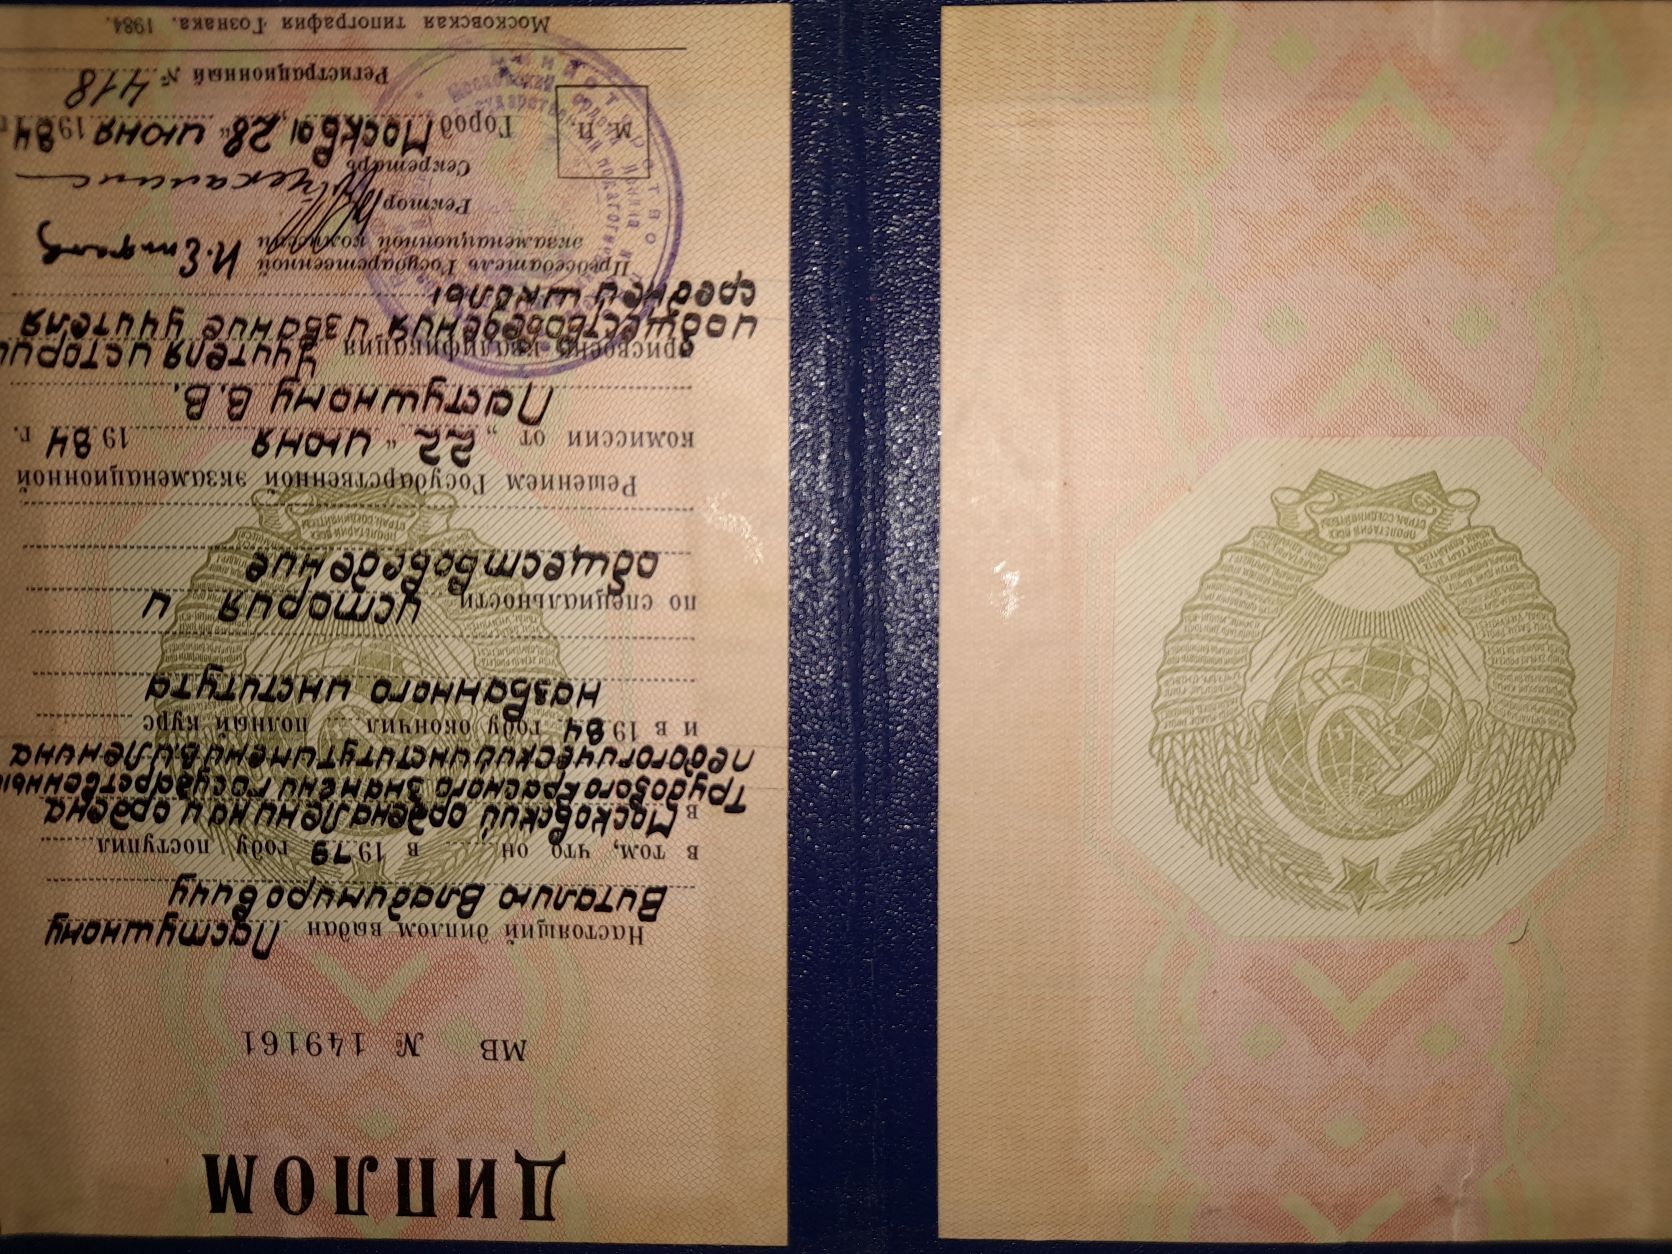 ДИПЛОМ
МВ № 149161
Настоящий диплом выдан Пастушному
Виталию Владимировичу
в том, что он в 1979 году поступил
в Московский ордена Ленина и ордена
Трудового Красного Знамени государственный
педагогический институт имени В.И.Ленина
и в 1984 году окончил полный курс
названного института
по специальности история и
обществоведение
Решением Государственной экзаменационной
комиссии от „22“ июня 1984 г.
Пастушному В.В.
присвоена квалификация учителя истории
и обществоведения и звание учителя
средней школы
Председатель Государственной
экзаменационной комиссии
Ректор
Секретарь
М. П.
Город Москва, „28“ июня 1984 г.
Регистрационный № 418
Московская типография Гознака. 1984.
ПРОЛЕТАРИИ ВСЕХ
СТРАН, СОЕДИНЯЙТЕСЬ